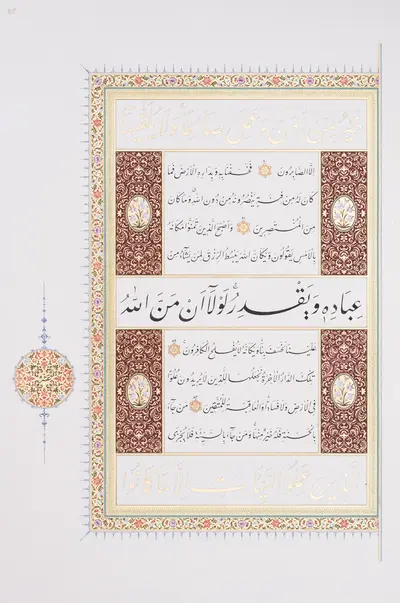 خَيْرٌ لِمَنْ آمَنَ وَعَمِلَ صَالِحًا وَلَا يُلَقَّاهَا
اِلَّا الصَّابِرُونَ فَخَسَفْنَا بِهِ وَبِدَارِهِ الْاَرْضَ فَمَا
كَانَ لَهُ مِنْ فِئَةٍ يَنْصُرُونَهُ مِنْ دُونِ اللّٰهِ وَمَا كَانَ
مِنَ الْمُنْتَصِرِينَ وَاَصْبَحَ الَّذِينَ تَمَنَّوْا مَكَانَهُ
بِالْاَمْسِ يَقُولُونَ وَيْكَاَنَّ اللّٰهَ يَبْسُطُ الرِّزْقَ لِمَنْ يَشَآءُ مِنْ
عِبَادِهِ وَيَقْدِرُ لَوْلَآ اَنْ مَنَّ اللّٰهُ
عَلَيْنَا لَخَسَفَ بِنَا وَيْكَاَنَّهُ لَا يُفْلِحُ الْكَافِرُونَ
تِلْكَ الدَّارُ الْآخِرَةُ نَجْعَلُهَا لِلَّذِينَ لَا يُرِيدُونَ عُلُوًّا
فِي الْاَرْضِ وَلَا فَسَادًا وَالْعَاقِبَةُ لِلْمُتَّقِينَ مَنْ جَآءَ
بِالْحَسَنَةِ فَلَهُ خَيْرٌ مِنْهَا وَمَنْ جَآءَ بِالسَّيِّئَةِ فَلَا يُجْزَى
الَّذِينَ عَمِلُوا السَّيِّئَاتِ اِلَّا مَا كَانُوا